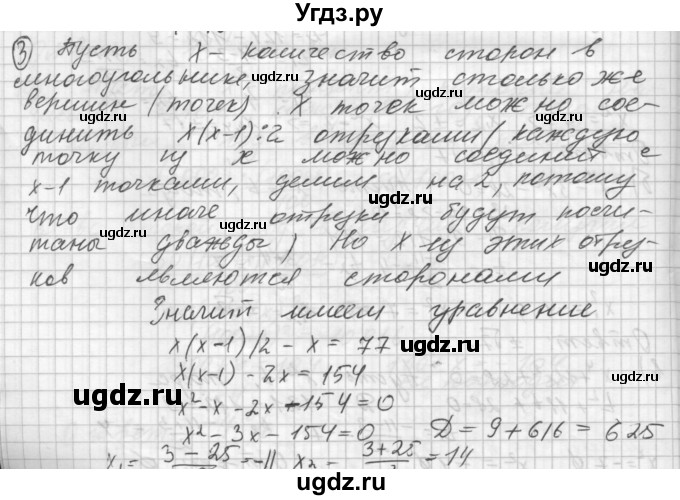 Угдз.ру
③ Пусть x - количество сторон в
многоугольнике, значит столько же
вершин (точек). X точек можно сое-
динить x(x-1):2 отрезками (каждую
точку из x можно соединит с
x-1 точками, делим на 2, потому
что иначе отрезки будут посчи-
таны дважды) Но x из этих отрез-
ков являются сторонами
Значит имеем уравнение
x(x-1)/2 - x = 77
x(x-1) - 2x = 154
x² - x - 2x - 154 = 0
x² - 3x - 154 = 0 D = 9 + 616 = 625
x₁ = 3 - 25 = -11 x₂ = 3 + 25 = 14
ugdz.ru
ugdz.ru
ugdz.ru
ugdz.ru
ugdz.ru
ugdz.ru
ugdz.ru
ugdz.ru
ugdz.ru
ugdz.ru
ugdz.ru
ugdz.ru
ugdz.ru
ugdz.ru